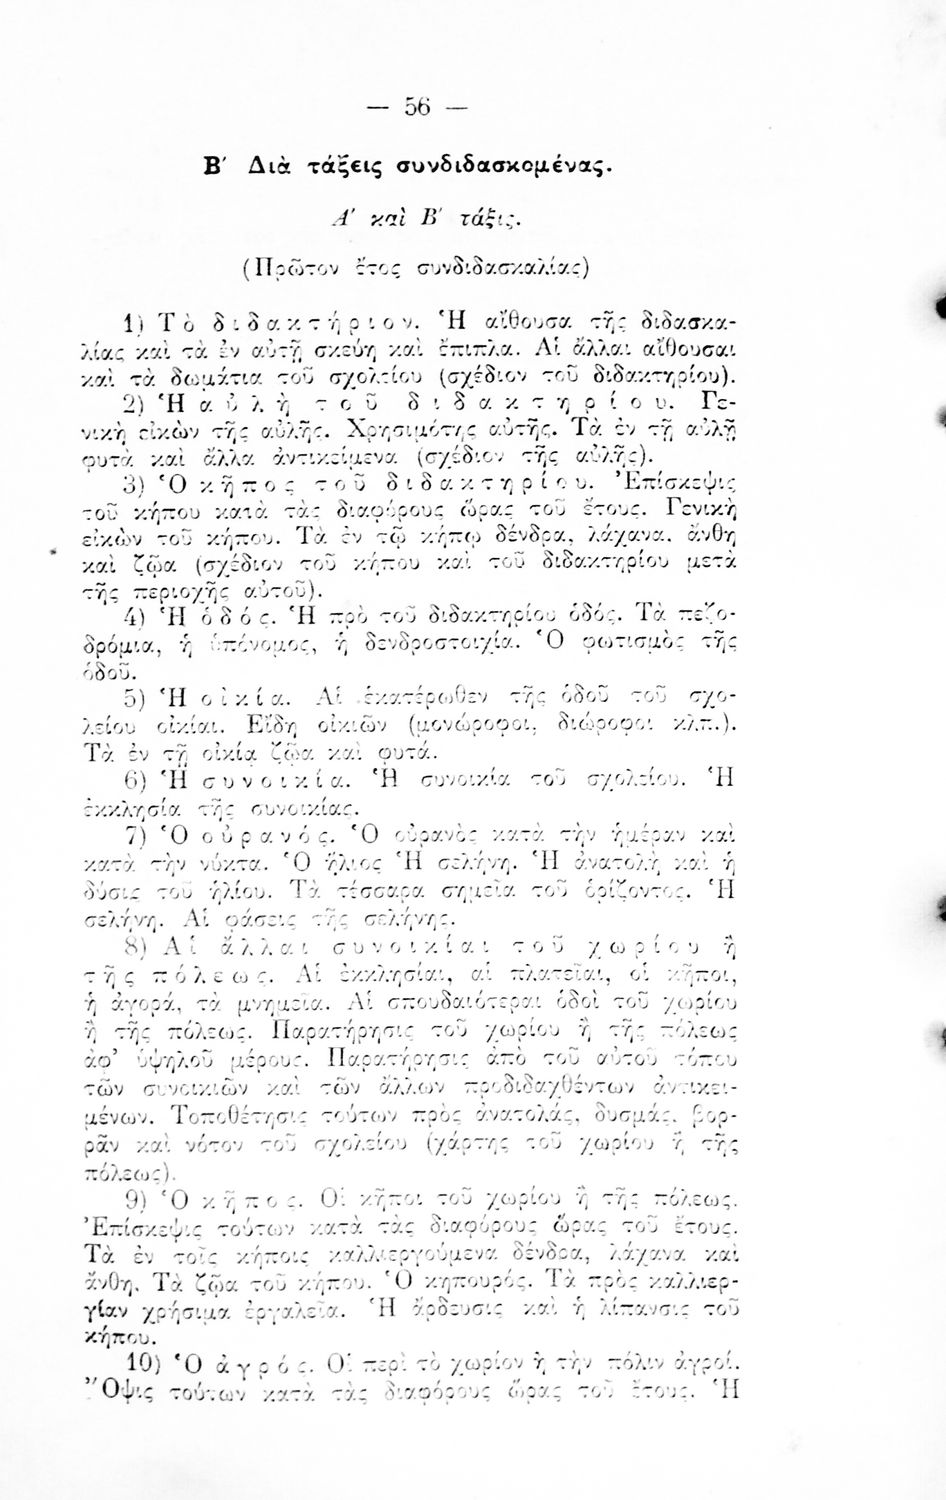 — 56 —
Β′ Διὰ τάξεις συνδιδασκομένας.
Α′ καὶ Β′ τάξις.
(Πρῶτον ἔτος συνδιδασκαλίας)
1) Τὸ διδακτήριον. Ἡ αἴθουσα τῆς διδασκα-
λίας καὶ τὰ ἐν αὐτῇ σκεύη καὶ ἔπιπλα. Αἱ ἄλλαι αἴθουσαι
καὶ τὰ δωμάτια τοῦ σχολείου (σχέδιον τοῦ διδακτηρίου).
2) Ἡ αὐλὴ τοῦ διδακτηρίου. Γε-
νικὴ εἰκὼν τῆς αὐλῆς. Χρησιμότης αὐτῆς. Τὰ ἐν τῇ αὐλῇ
φυτὰ καὶ ἄλλα ἀντικείμενα (σχέδιον τῆς αὐλῆς).
3) Ὁ κῆπος τοῦ διδακτηρίου. Ἐπίσκεψις
τοῦ κήπου κατὰ τὰς διαφόρους ὥρας τοῦ ἔτους. Γενικὴ
εἰκὼν τοῦ κήπου. Τὰ ἐν τῷ κήπῳ δένδρα, λάχανα, ἄνθη
καὶ ζῷα (σχέδιον τοῦ κήπου καὶ τοῦ διδακτηρίου μετὰ
τῆς περιοχῆς αὐτοῦ).
4) Ἡ ὁδός. Ἡ πρὸ τοῦ διδακτηρίου ὁδός. Τὰ πεζο-
δρόμια, ἡ ὑπόνομος, ἡ δενδροστοιχία. Ὁ φωτισμὸς τῆς
ὁδοῦ.
5) Ἡ οἰκία. Αἱ ἑκατέρωθεν τῆς ὁδοῦ τοῦ σχο-
λείου οἰκίαι. Εἴδη οἰκιῶν (μονώροφοι, διώροφοι κλπ.).
Τὰ ἐν τῇ οἰκίᾳ ζῷα καὶ φυτά.
6) Ἡ συνοικία. Ἡ συνοικία τοῦ σχολείου. Ἡ
ἐκκλησία τῆς συνοικίας.
7) Ὁ οὐρανός. Ὁ οὐρανὸς κατὰ τὴν ἡμέραν καὶ
κατὰ τὴν νύκτα. Ὁ ἥλιος Ἡ σελήνη. Ἡ ἀνατολὴ καὶ ἡ
δύσις τοῦ ἡλίου. Τὰ τέσσαρα σημεῖα τοῦ ὁρίζοντος. Ἡ
σελήνη. Αἱ φάσεις τῆς σελήνης.
8) Αἱ ἄλλαι συνοικίαι τοῦ χωρίου ἢ
τῆς πόλεως. Αἱ ἐκκλησίαι, αἱ πλατεῖαι, οἱ κῆποι,
ἡ ἀγορά, τὰ μνημεῖα. Αἱ σπουδαιότεραι ὁδοὶ τοῦ χωρίου
ἢ τῆς πόλεως. Παρατήρησις τοῦ χωρίου ἢ τῆς πόλεως
ἀφ’ ὑψηλοῦ μέρους. Παρατήρησις ἀπὸ τοῦ αὐτοῦ τόπου
τῶν συνοικιῶν καὶ τῶν ἄλλων προδιδαχθέντων ἀντικει-
μένων. Τοποθέτησις τούτων πρὸς ἀνατολάς, δυσμάς, βορ-
ρᾶν καὶ νότον τοῦ σχολείου (χάρτης τοῦ χωρίου ἢ τῆς
πόλεως).
9) Ὁ κῆπος. Οἱ κῆποι τοῦ χωρίου ἢ τῆς πόλεως.
Ἐπίσκεψις τούτων κατὰ τὰς διαφόρους ὥρας τοῦ ἔτους.
Τὰ ἐν τοῖς κήποις καλλιεργούμενα δένδρα, λάχανα καὶ
ἄνθη. Τὰ ζῷα τοῦ κήπου. Ὁ κηπουρός. Τὰ πρὸς καλλιερ-
γίαν χρήσιμα ἐργαλεῖα. Ἡ ἄρδευσις καὶ ἡ λίπανσις τοῦ
κήπου.
10) Ὁ ἀγρός. Οἱ περὶ τὸ χωρίον ἢ τὴν πόλιν ἀγροί.
Ὄψις τούτων κατὰ τὰς διαφόρους ὥρας τοῦ ἔτους. Ἡ